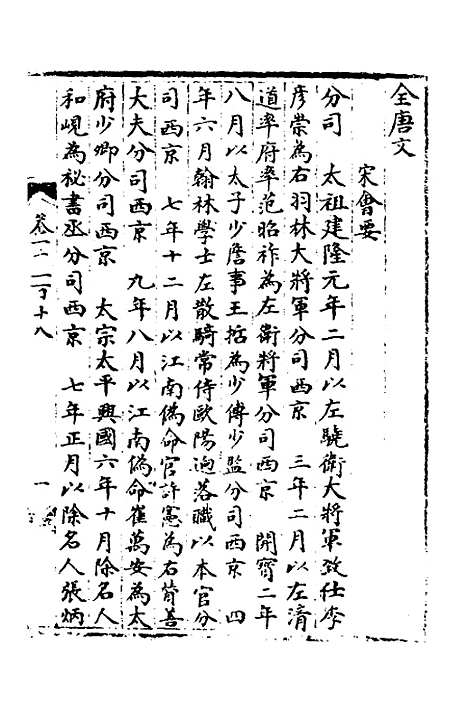 全唐文
宋會要
分司　太祖建隆元年二月以左驍衛大將軍致仕李
彥崇為右羽林大將軍分司西京　三年二月以左清
道率府率范昭祚為左衛將軍分司西京　開寶二年
八月以太子少詹事王括為少傅少監分司西京　四
年六月翰林學士左散騎常侍歐陽迥落職以本官分
司西京　七年十二月以江南偽命官許憲為右贊善
大夫分司西京　九年八月以江南偽命崔萬安為太
府少卿分司西京　太宗太平興國六年十月除名人
和峴為秘書丞分司西京　七年正月以除名人張炳
卷一二一丁十八
一